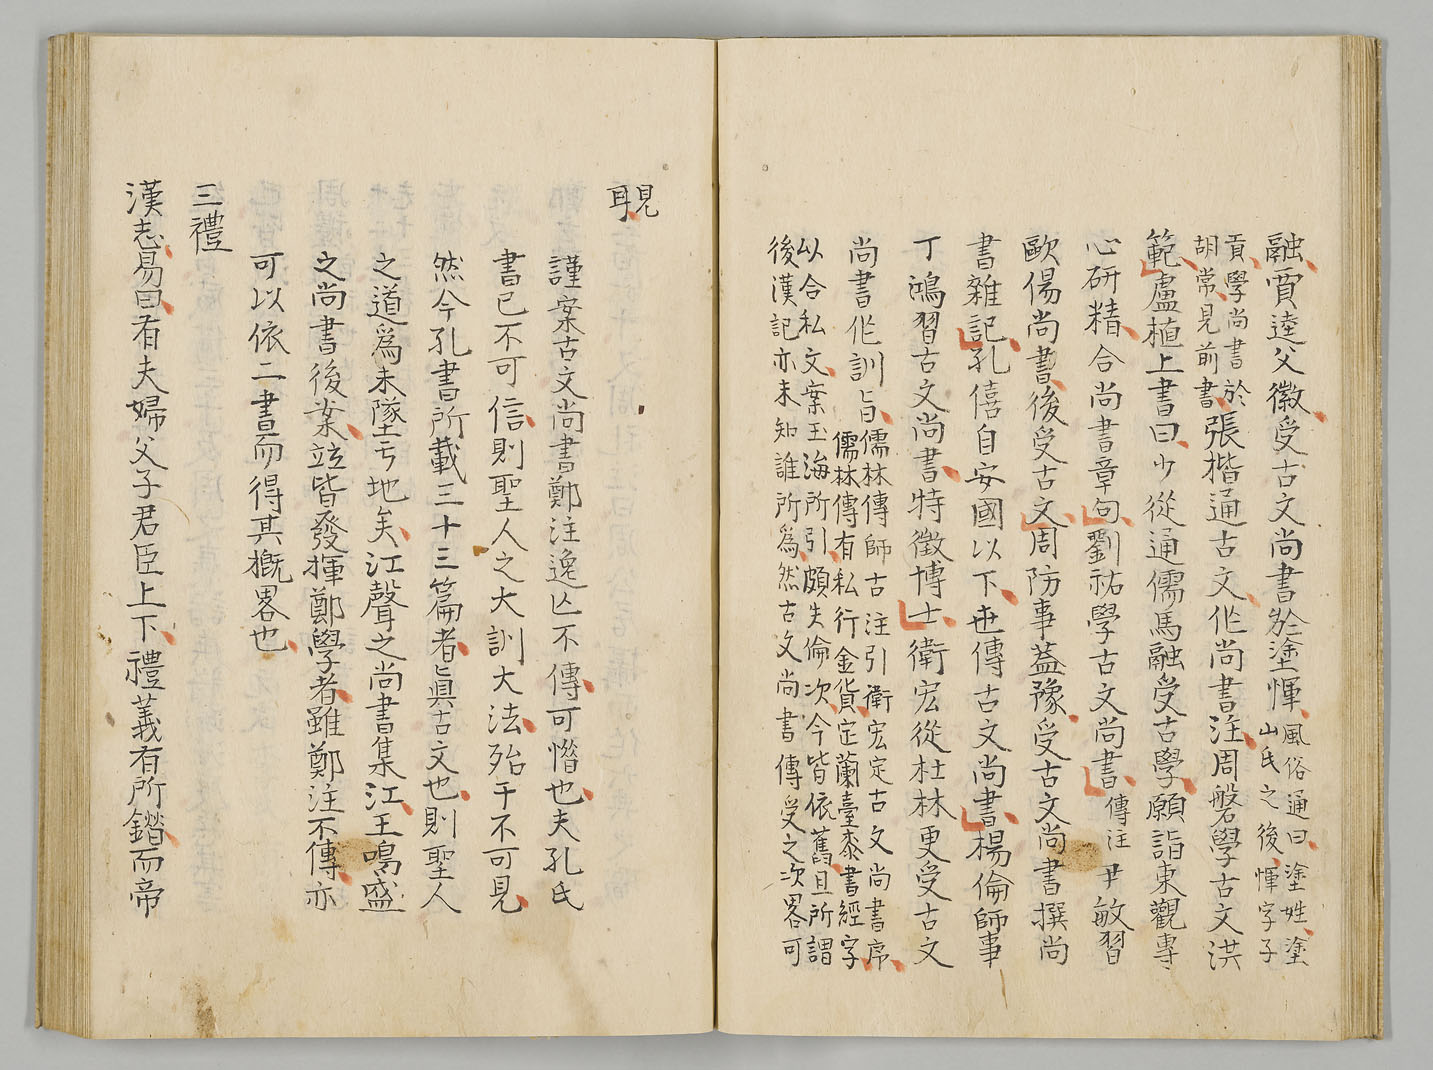 融賈逵父徽受古文尚書於塗惲風俗通曰塗姓塗
山氏之後惲字子
貢學尚書於
胡常見前書張楷通古文作尚書注周磐學古文洪
範盧植上書曰少從通儒馬融受古學願詣東觀專
心研精合尚書章句劉祐學古文尚書傳注尹敏習
歐陽尚書後受古文周防事蓋豫受古文尚書撰尚
書雜記孔僖自安國以下世傳古文尚書楊倫師事
丁鴻習古文尚書特徵博士衛宏從杜林更受古文
尚書作訓旨儒林傳師古注引衛宏定古文尚書序
儒林傳有私行金貨定蘭臺桼書經字
以合私文案玉海所引頗失倫次今皆依舊且所謂
後漢記亦未知誰所為然古文尚書傳受之次畧可
見
耳
謹案古文尚書鄭注逸亾不傳可憯也夫孔氏
書已不可信則聖人之大訓大法殆乎不可見
然今孔書所載三十三篇者皀真古文也則聖人
之道為未墜亐地矣江聲之尚書集江王鳴盛
之尚書後案竝皆發揮鄭學者雖鄭注不傳亦
可以依二書而得其概畧也
三禮
漢志易曰有夫婦父子君臣上下禮義有所錯而帝